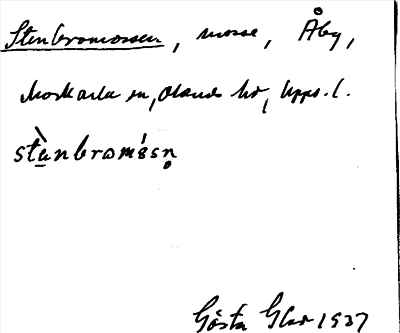 Stenbromossen, mosse, Åby,
Morkarla sn, Olands hd, Upps. l.
stènbromósn̥
Gösta Glas 1937